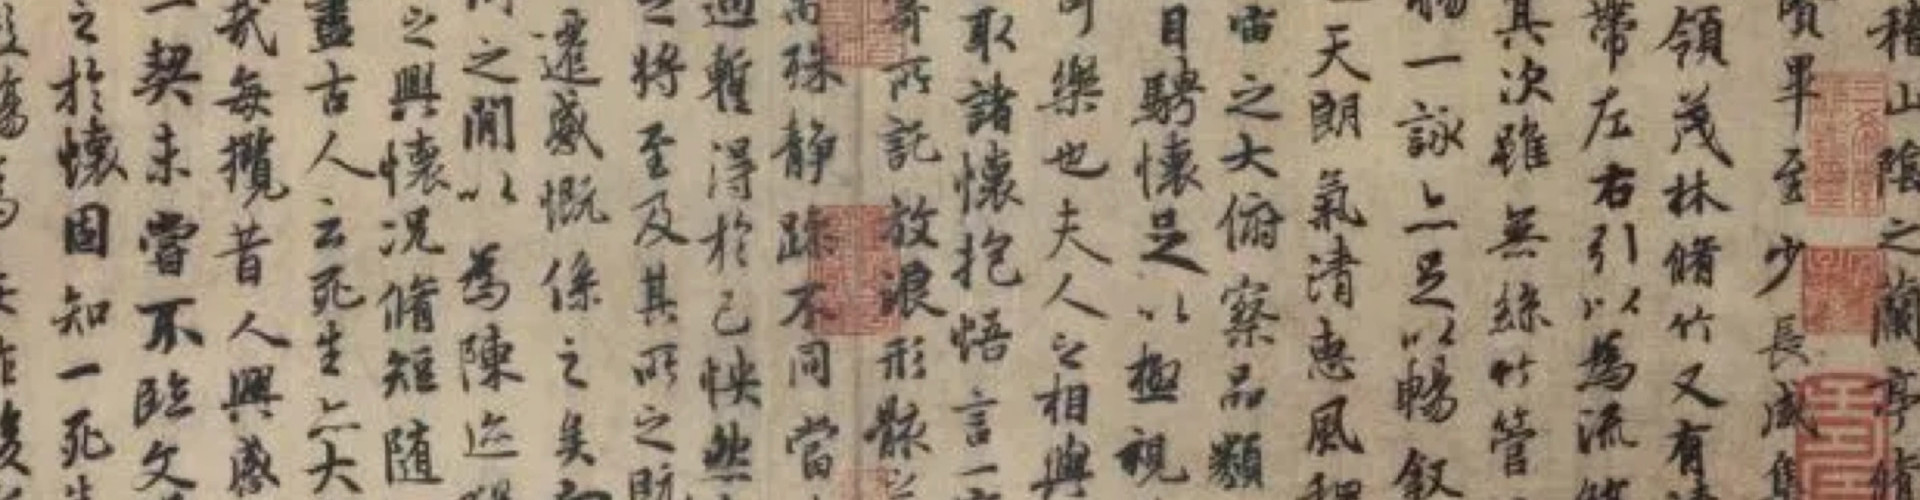 稽山陰之蘭亭脩
賢畢至少長咸集
領茂林脩竹又有清
帶左右引以為流
其次雖無絲竹管
觴一詠亦足以暢叙
天朗氣清惠風和
宙之大俯察品類
目騁懷足以極視
可樂也夫人之相與
取諸懷抱悟言一室
寄所託放浪形骸之
萬殊靜躁不同當
遇暫得於己怏然
之將至及其所之既
遷感慨係之矣向
之間以為陳迹猶
之興懷況脩短隨
盡古人云死生亦大
哉每攬昔人興感
一契未嘗不臨文
之於懷固知一死生